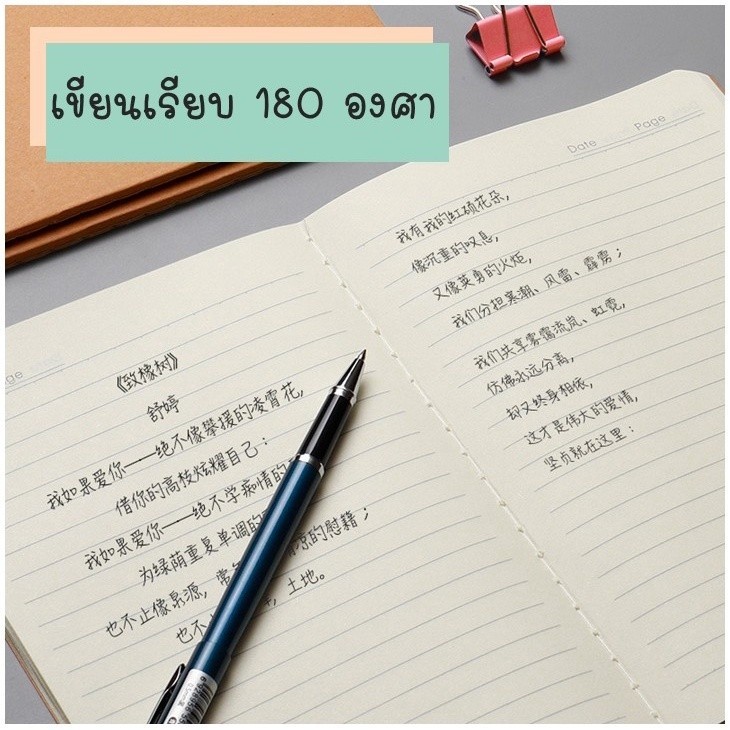 เขียนเรียบ 180 องศา
Date Page
《致橡树》
舒婷
我如果爱你——绝不像攀援的凌霄花，
借你的高枝炫耀自己：
我如果爱你——绝不学痴情的
为绿荫重复单调的 的慰籍；
也不止像泉源，常年 凉的慰籍；
也不 土地。
我有我的红硕花朵，
像沉重的叹息，
又像英勇的火炬，
我们分担寒潮、风雷、霹雳；
我们共享雾霭流岚、虹霓，
仿佛永远分离，
却又终身相依，
这才是伟大的爱情，
坚贞就在这里：